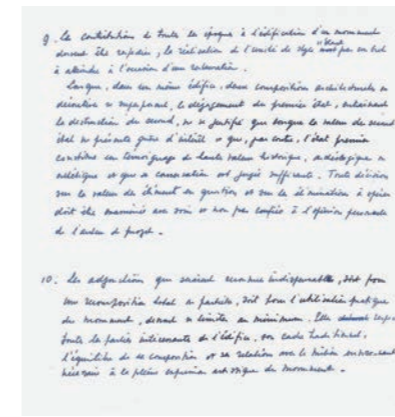 9. La contribution de toute les époque à l'édification d'un monument
doivent être respectées, la réalisation de l'unité de style n'étant pas un but
à atteindre à l'occasion d'une restauration.
Lorsque, dans un même édifice, deux compositions architecturales ou
décoratives se superposent, le dégagement du premier état, entraînant
la destruction du second, ne se justifie que lorsque la valeur du second
état ne présente guère d'intérêt et que, par contre, l'état premier
constitue un témoignage de haute valeur historique, archéologique ou
esthétique et que sa conservation est jugée suffisante. Toute décision
sur la valeur de l'élément en question et sur les éliminations à opérer
doit être examinée avec soin et non pas confiée à l'opinion personnelle
de l'auteur du projet.
10. Les adjonctions qui seraient reconnues indispensables, soit pour
une recomposition totale ou partielle, soit pour l'utilisation pratique
du monument, devront se limiter au minimum. Elles
toutes les parties intéressantes de l'édifice, son cadre traditionnel,
l'équilibre de sa composition et sa relation avec le milieu environnant
nécessaire à la pleine expression artistique du monument.